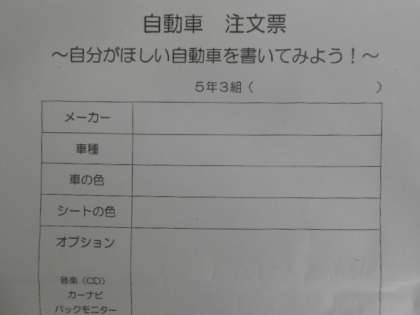 自動車 注文票
～自分がほしい自動車を書いてみよう！～
5年3組（ ）
メーカー
車種
車の色
シートの色
オプション
音楽（CD）
カーナビ
バックモニター